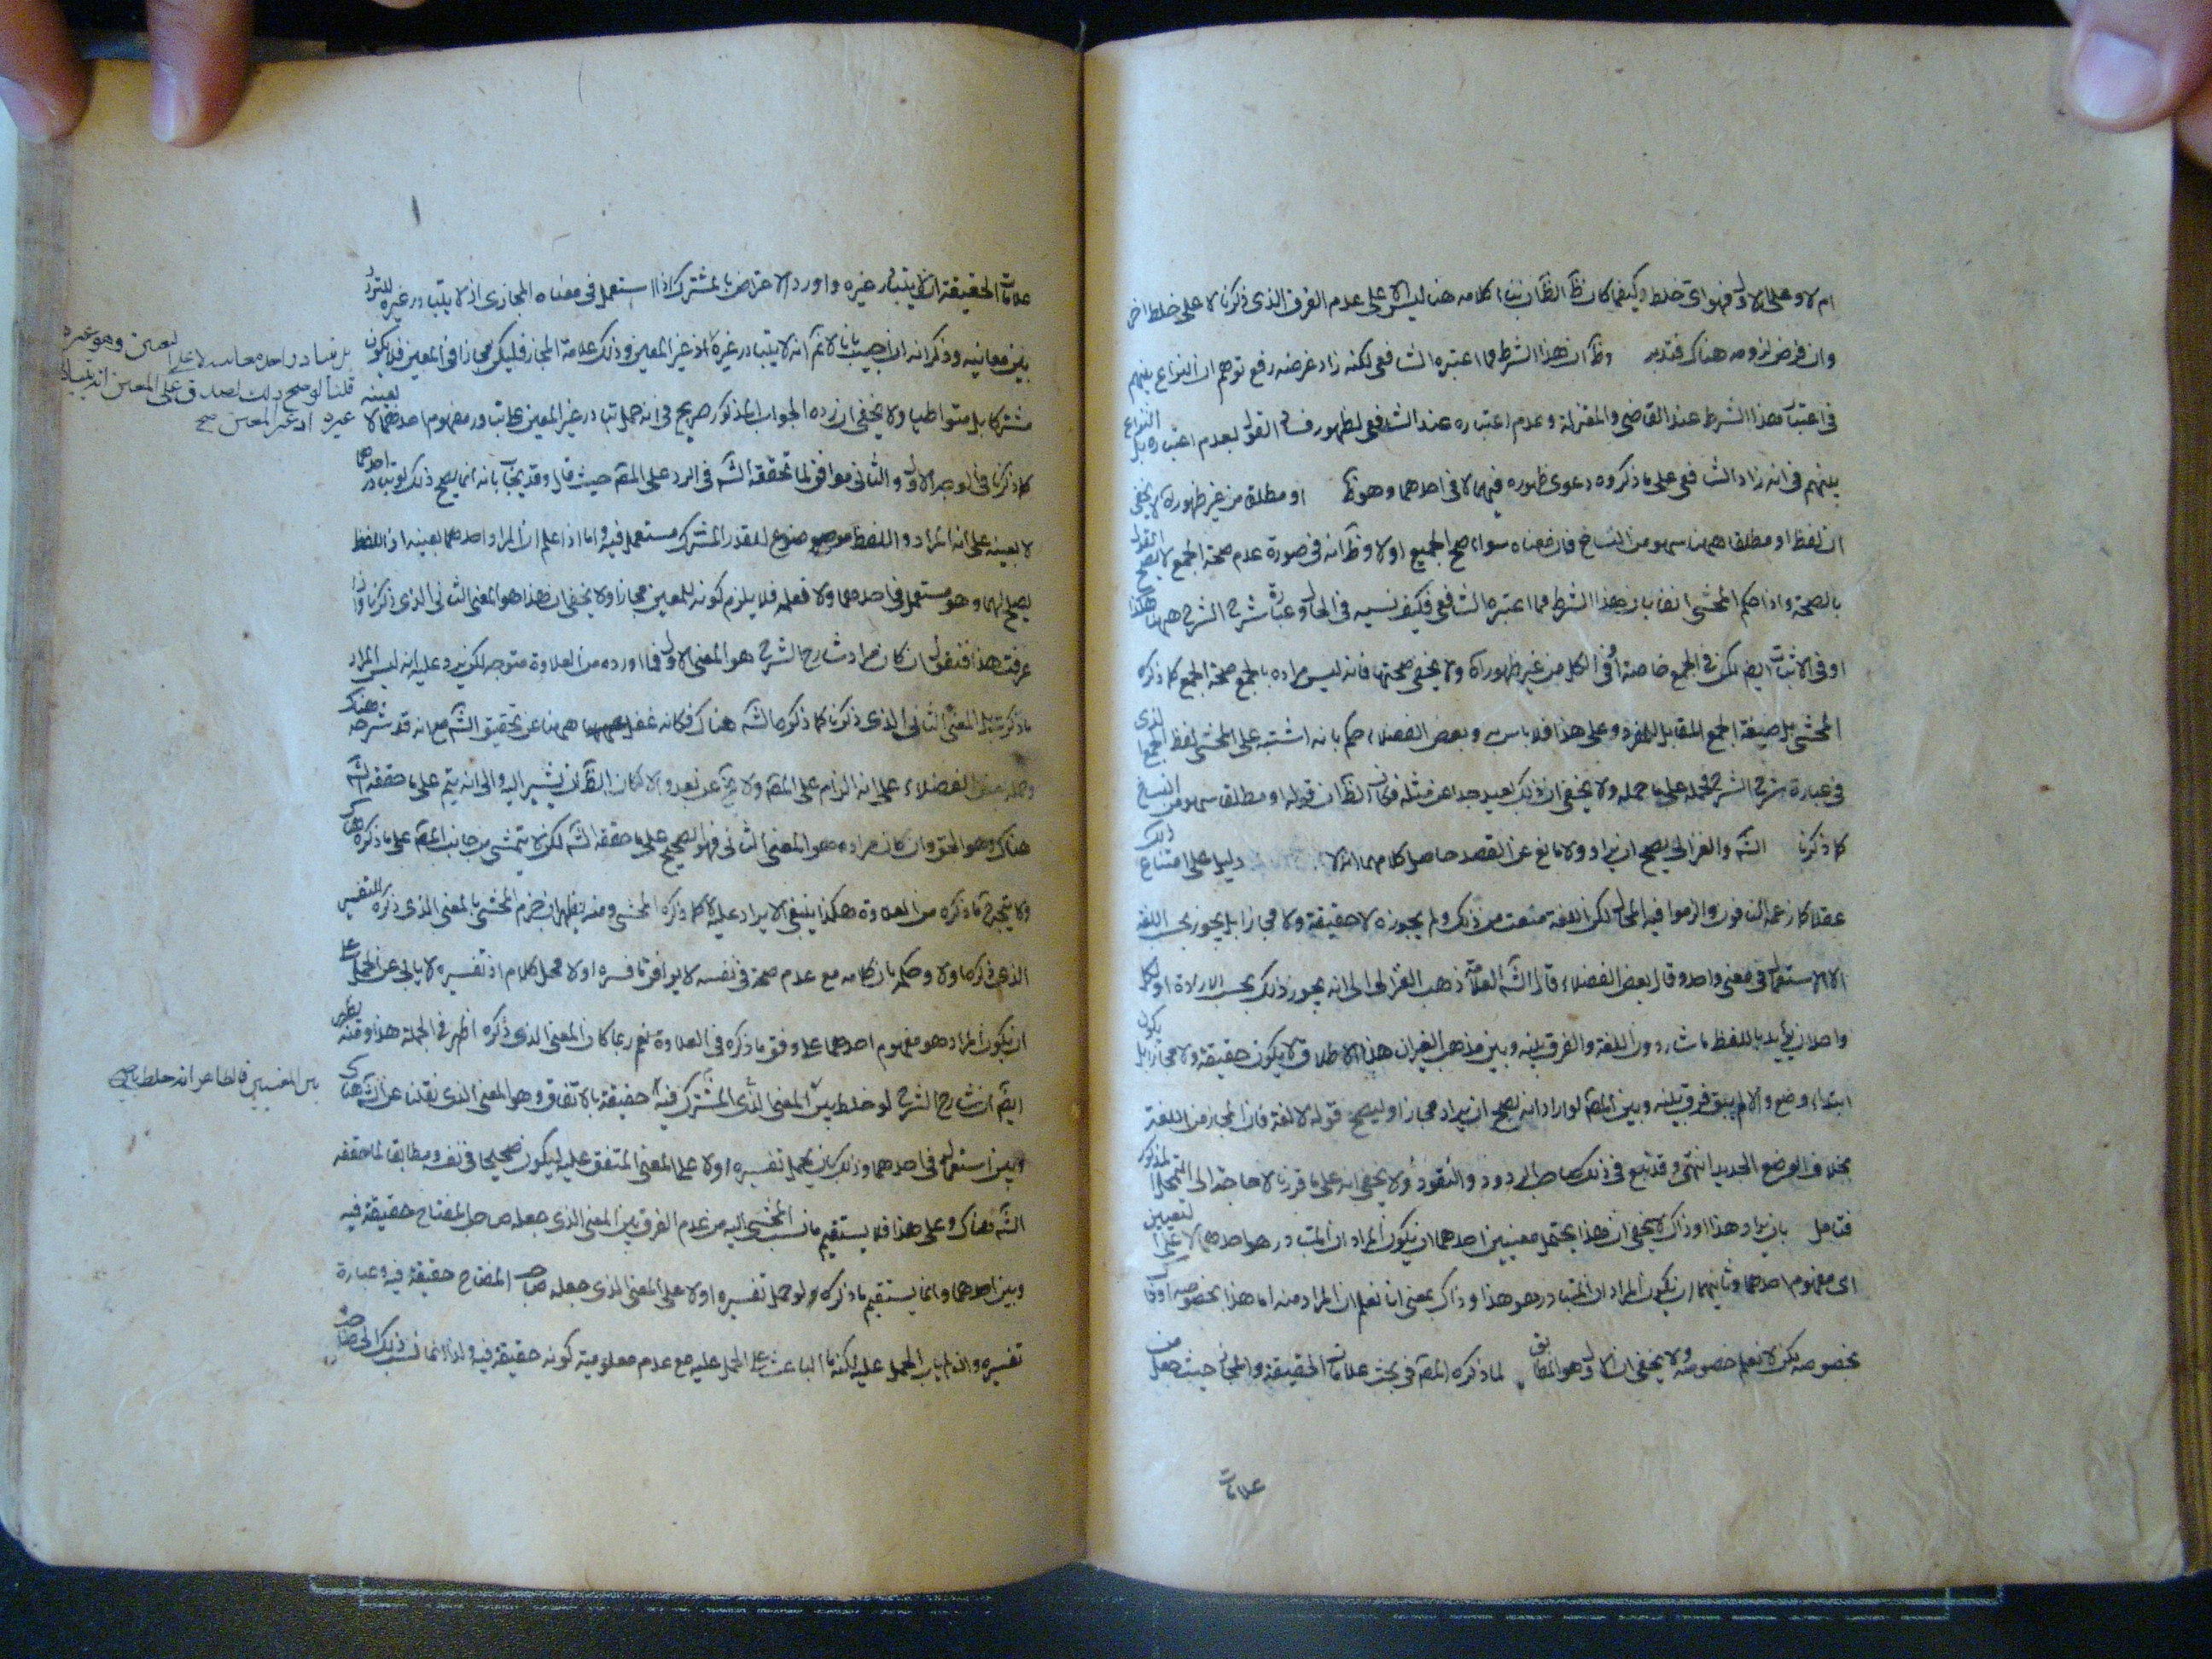 ام لا وعلى الاول فهو اى خلط وكيفما كان ظ الظان بناء كلامه هنا ليس الا على عدم الفرق الذى ذكرنا لا على خلط اخر
وان فرض لزومه هناك فتدبر وظ ان هذا الشرط مما اعتبره الشافعى لكنه زاد غرضه رفع توهم ان النزاع بينهم
فى اعتبار هذا الشرط عند القاضى والمعتزلة وعدم اعتباره عند الشافعى لظهور فساد القول بعدم اعتباره بل النزاع
بينهم فى انه زاد الشافعى على ما ذكروه دعوى ظهوره فيهما لا فى احدهما وهو ظ او مطلقا من غير ظهور لا يخفى
ان لفظ او مطلقا ههنا سهو من النساخ فان معناه سواء صح الجمع او لا وظ انه فى صورة عدم صحة الجمع لا يصح القول
بالصحة واذا حكم المحشى انفا بان هذا الشرط مما اعتبره الشافعى فكيف نسيه فى الحال وعبارة شرح الشرح ههنا هكذا
او فى الاثبات ايضا لكن فى الجمع خاصة او فى الكل من غير ظهور ولا يخفى صحتها فانه ليس مراده بالجمع صحة الجمع كما ذكره
المحشى بل صيغة الجمع المقابل للمفرد وعلى هذا فلا باس وبعض الفضلاء حكم بانه اشتبه على المحشى لفظ الجمع الذى
فى عبارة شرح الشرح فحمله على ما حمله ولا يخفى ان ذلك بعيد جدا عن مثله فان الظ ان قوله او مطلقا سهو من النسخ
كما ذكرنا الشه والغزالى يصح ان يراد ولا مانع عن القصد حاصل كلامهما انه لا دليل على امتناع ذلك
عقلا كما زعمه النافون والزموا فيه المحال لكن اللغة منعت من ذلك ولم يجوزه لا حقيقة ولا مجازا بل يجوز بحسب اللغة
الا الاستعمال فى معنى واحد وقال بعض الفضلاء قال الشه العلامة ذهب الغزالى الى انه يجوز ذلك بحسب الارادة او لكل
واحد ان يريد باللفظ ما شاء دون اللغة والفرق بينه وبين مذهب الغير ان هذا الاطلاق لا يكون حقيقة ولا مجازا بل يكون
ابتداء وضع والا لم يبق فرق بينه وبين المصه لو اراد انه يصح ان يراد مجازا وليصح قوله لا لغة فان المجاز من اللغة
بخلاف الوضع الجديد انتهى وقد تبع فى ذلك صاحب الردود والنقود ولا يخفى انه على ما قررنا لا حاجة الى التمحل المذكور
فتامل بان يراد هذا او ذاك لا يخفى ان هذا يحتمل معنيين احدهما ان يكون المراد ان المتبادر هو احدهما لا على التعيين
اى مفهوم احدهما وثانيهما ان يكون المراد ان المتبادر هو هذا وذاك بمعنى انا نعلم ان المراد منه اما هذا بخصوصه او ذاك
بخصوصه لكن لا نعلم خصوصه ولا يخفى ان الاول هو المطابق لما ذكره المصه فى بحث علامات الحقيقة والمجاز حيث جعل من
علامات
علامات الحقيقة ان لا يتبادر غيره واورد الاعتراض بالمشترك اذا استعمل فى معناه المجازى اذ لا يتبادر غيره للتردد
بين معانيه وذكر انه ان اجيب بانا لا نم انه لا يتبادر غيره اذ غير المعين وذلك علامة المجاز فليكن مجازا فى المعين فلا يكون
مشتركا بل متواطيا ولا يخفى ان رده الجواب المذكور صريح فى انه حمل تبادر غير المعين على تبادر مفهوم احدهما لا بعينه
كما ذكرنا فى الوجه الاول والثانى موافق لما تحققه الشه فى الرد على المصه حيث قال وقد يجاب بانه انما يصح ذلك لو تبادر احدهما
لا بعينه على انه المراد واللفظ موضوع للقدر المشترك مستعمل فيه واما اذا علم ان المراد احدهما بعينه اذ اللفظ
يصلح لهما وهو مستعمل فى احدهما ولا نعلمه فلا يلزم كونه للمعين مجازا ولا يخفى ان هذا هو المعنى الثانى الذى ذكرنا واذا
عرفت هذا فنقول ان كان مراد شارح الشرح هو المعنى الاول فما اورده من العلاوة متوجه لكن يرد عليه انه ليس المراد
ما ذكرته بل المعنى الثانى الذى ذكرنا كما ذكره الشه هناك فكانه غفل ههنا عن تحقيق الشه مع انه قد شرحه هناك
وحمله بعض الفضلاء على انه الزام على المصه ولا يخ عن بعد والا لكان الظ ان يشير اليه والى انه يتم على ما حققه الشه
هناك وهو الحق وان كان مراده هو المعنى الثانى فهو الصحيح على ما حققه الشه لكن لا يتمشى من جانب المصه على ما ذكره هناك
ولا يتجه ما ذكره من العلاوة هكذا ينبغى الايراد عليه لا كما ذكره المحشى ومنه يظهر ان جزم المحشى بالمعنى الذى ذكره للتفسير
الذى ذكره اولا وحكمه بان كلامه مع عدم صحته فى نفسه لا يوافق ما فسره اولا محل كلام اذ تفسيره لا يابى عن الحمل على
ان يكون المراد هو مفهوم احدهما على وفق ما ذكره فى العلاوة نعم ربما كان المعنى الذى ذكره اظهر فى الجملة هذا ومنه يظهر
ايضا ان شارح الشرح لو خلط بين المعنى الذى المشترك فيه حقيقة بالاتفاق وهو المعنى الذى نقلنا عن الشه هناك
وبين استعماله فى احدهما وذلك بان يحمل تفسيره اولا على المعنى المتفق عليه ليكون صحيحا فى نفسه ومطابقا لما حققه
الشه هناك وعلى هذا فلا يستقيم ما نسب المحشى اليه من عدم الفرق بين المعنى الذى جعله صاحب المفتاح حقيقة فيه
وبين احدهما وانما يستقيم ما ذكره لو حمل تفسيره اولا على المعنى الذى جعله صاحب المفتاح حقيقة فيه وعبارة
تفسيره وان لم ياب الحمل عليه لكنه ما الباعث على الحمل عليه مع عدم معلومية كونه حقيقة فيه
بل تبادر واحد من معانيه لا على التعيين وهو غيره
قلنا لو صح ذلك لصدق على المعين انه يتبادر
غيره اذ غير المعين صح
بين المعنيين فالظاهر انه خلط